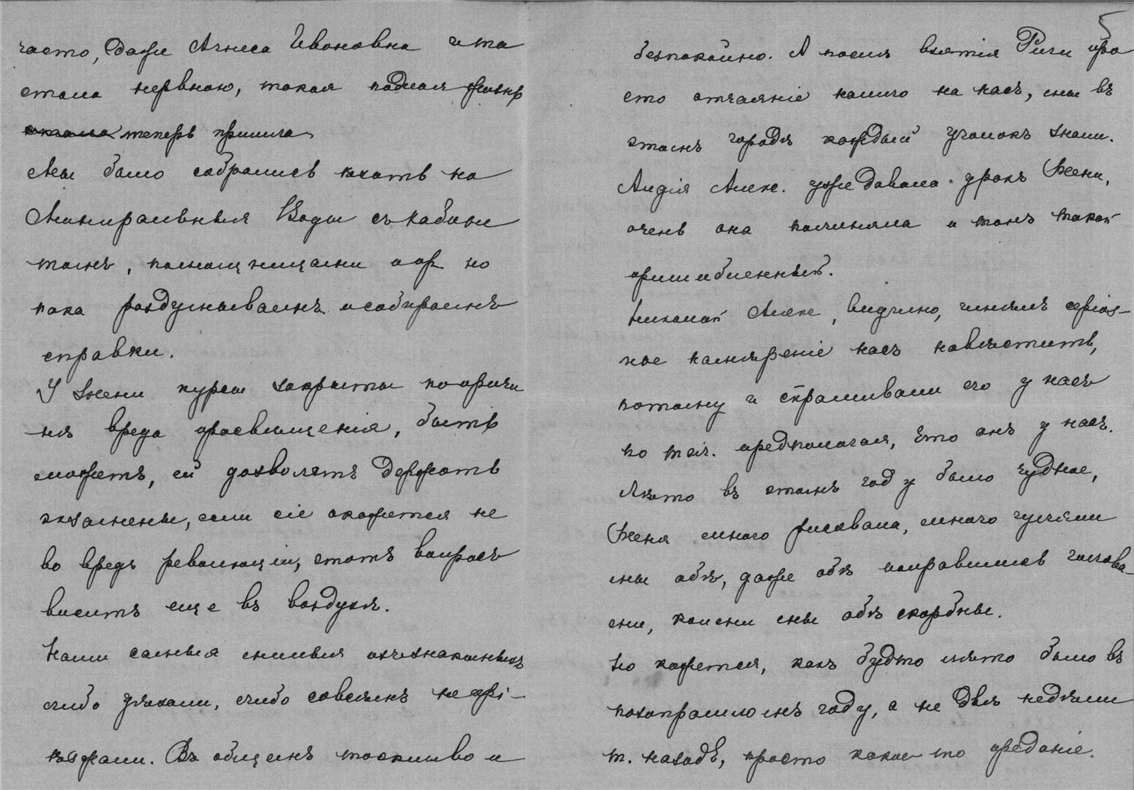 часто, даже Агнеса Ивановна и та
стала нервною, такая подлая
теперь пришла
Мы было собрались ехать на
Миниральныя Воды съ кабане
томъ, помощницами но
пока раздумываемъ и собираемъ
справки.
У Жени курсы закрыты по причи
нѣ вреда просвещенія, быть
можетъ, ей дозволятъ держать
экзамены, если сіе окажется не
во вредъ революціи, этотъ вопросъ
виситъ еще въ воздухѣ.
Наши самыя милыя
либо уѣхали, либо совсѣмъ не прі-
ѣзжали. Въ общемъ тоскливо и
5
безпокойно. А послѣ взятія Риги про
сто отчаяніе нашло на насъ, мы въ
этомъ городѣ каждый уголокъ знали.
Лидія Алек. уже давала урокъ Жени,
очень она полиняла и тонъ такой
пришибленный.
Николай Алекс, видимо, имѣлъ серіоз-
ное намѣреніе насъ навѣстить,
потому и спрашивали его у насъ
по тел. предполагая, что онъ у насъ.
Лѣто въ этомъ году было чудное,
Женя много рисовала, много гуляли
мы обѣ, даже обѣ поправились голова-
ми, коими мы обѣ скорбны.
Но кажется, какъ будто лѣто было въ
позапрошломъ году, а не двѣ недѣли
т. назадъ, просто какое то преданіе.